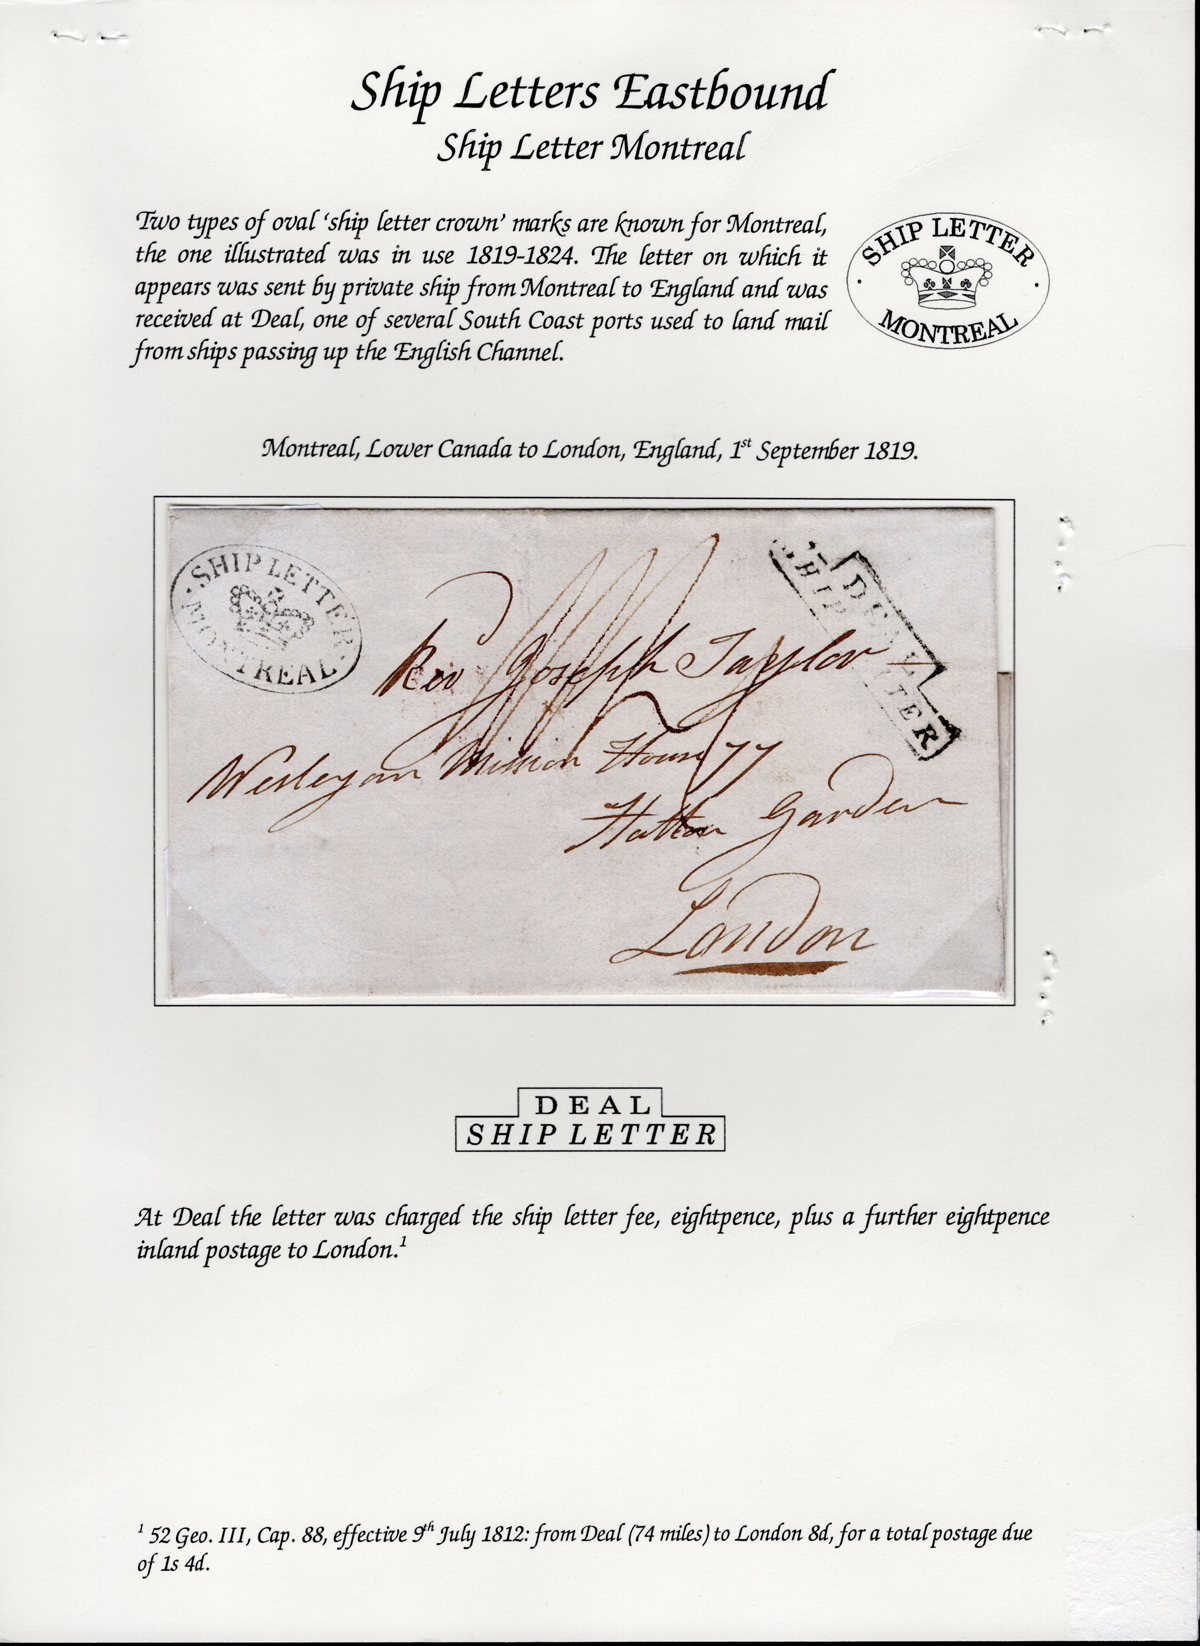 Ship Letters Eastbound
Ship Letter Montreal
Two types of oval ‘ship letter crown’ marks are known for Montreal,
the one illustrated was in use 1819-1824. The letter on which it
appears was sent by private ship from Montreal to England and was
received at Deal, one of several South Coast ports used to land mail
from ships passing up the English Channel.
SHIP LETTER
MONTREAL
Montreal, Lower Canada to London, England, 1st September 1819.
SHIP LETTER
MONTREAL
DEAL
SHIP LETTER
Rev Joseph Taylor
Wesleyan Mission House 77
Hatton Garden
London
DEAL
SHIP LETTER
At Deal the letter was charged the ship letter fee, eightpence, plus a further eightpence
inland postage to London.1
1 52 Geo. III, Cap. 88, effective 9th July 1812: from Deal (74 miles) to London 8d, for a total postage due
of 1s 4d.